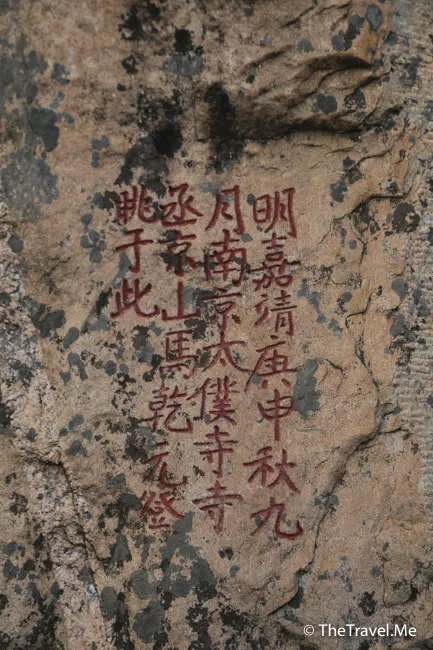 明嘉靖庚申秋九
月南京太僕寺寺
丞京山馬乾元登
眺于此
© TheTravel.Me